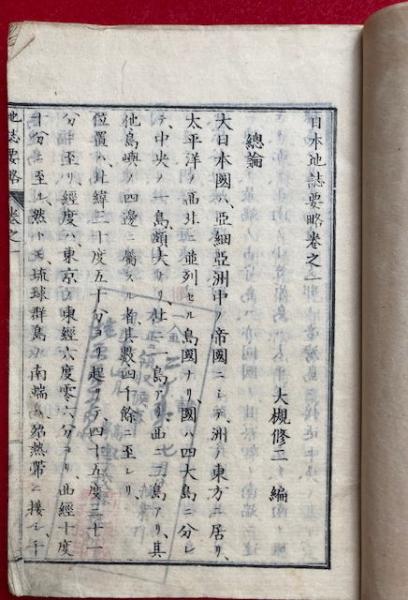 日本地誌要略卷之一
大槻修二 編
總論
大日本國ハ、亞細亞洲中ノ帝國ニシテ、洲ノ東方ニ居リ、
太平洋ノ西北ニ並列セル島國ナリ、國ハ四大島ニ分レ
テ、中央ノ一島、頗大ナリ、北ニ一島アリ、西ニ二島アリ、其
他島嶼ノ四邊ニ屬スル者、其數四千餘ニ至レリ、
位置ハ、北緯三十度五十分ヨリ起リテ、四十五度三十一
分ニ至リ、經度ハ、東京ノ東經六度零六分ヨリ、西經十度
十分ニ至ル、然トモ琉球群島ノ南端ハ、殆熱帶ニ接シ、千
地誌要略 卷之一